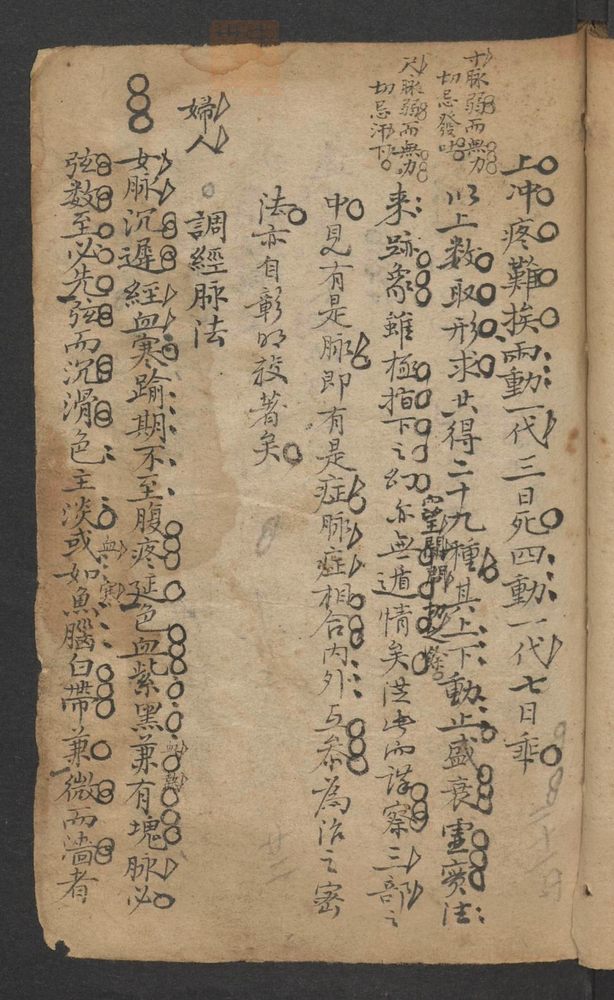 寸脉弱而無力
切忌發吐
尺脉弱而無力
切忌汗下
上冲疼難挨兩動一代三日死四動一代七日乖
以上数取形求共得二十九種其上下動止盛衰虛實法
望聞問切之餘
来跡象雖極指下之幻亦無遁情矣洪 而謹察三部之
中見有是脉即有是症脉症相合內外互叅為治之密
法亦自彰明較著矣
婦人
調經脉法
女脉沉遲經血寒踰期不至腹疼延色血紫黑兼有塊脉必
血熱
弦数至必先弦而沉滑色主淡或如魚腦白帶兼微而濇者
血寒